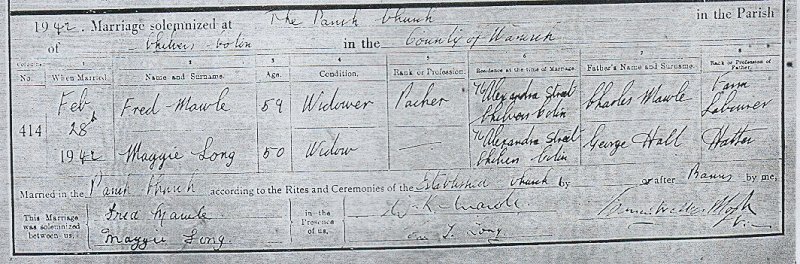 1942. Marriage solemnized at The Parish Church in the Parish
of Chilvers Coton in the County of Warwick
No. When Married. Name and Surname. Age. Condition. Rank or Profession. Residence at the time of Marriage. Father's Name and Surname. Rank or Profession of Father.
1 2 3 4 5 6 7 8
414
Feb 28th 1942
Fred Mawle 59 Widower Packer 76 Alexandra Street Chilvers Coton Charles Mawle Farm Labourer
Maggie Long 50 Widow — 76 Alexandra Street Chilvers Coton George Hall Hatter
Married in the Parish Church according to the Rites and Ceremonies of the Established Church by — or after Banns by me,
This Marriage was solemnized between us,
Fred Mawle
Maggie Long.
in the Presence of us,
Long